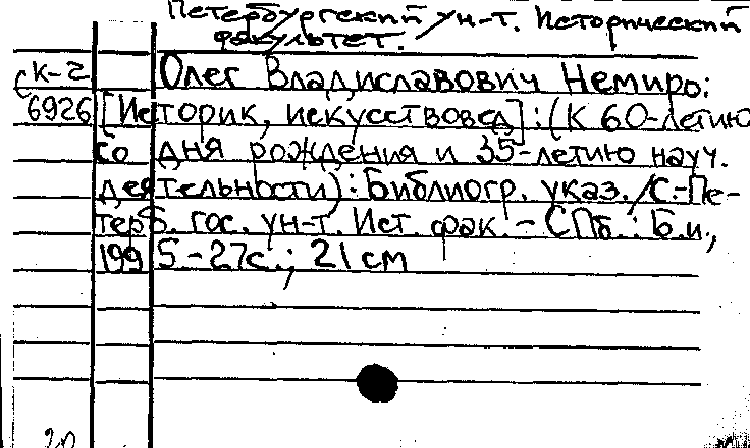 Петербургский ун-т. Исторический
факультет.
СК-2 Олег Владиславович Немиро:
6926 [Историк, искусствовед]: (К 60-летию
со дня рождения и 35-летию науч.
деятельности): Библиогр. указ. / С.-Пе-
терб. гос. ун-т. Ист. фак. - СПб.: Б.и.,
1995 - 27с.; 21 см
20